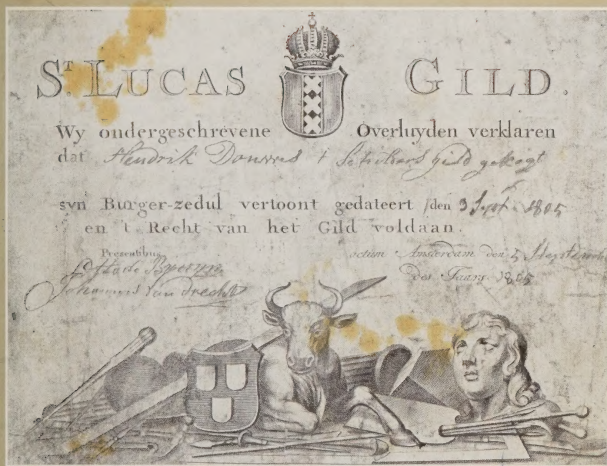 ST. LUCAS GILD.
Wy ondergeschrevene Overluyden verklaren
dat Hendrik Douwes 't Schilders Gild gekogt
syn Burger-zedul vertoont gedateert den 3 Sept. 1805
en 't Recht van het Gild voldaan.
Presentibus
actum Amsterdam den 5 Septemb
des Jaars 1805
Johannes van Drecht